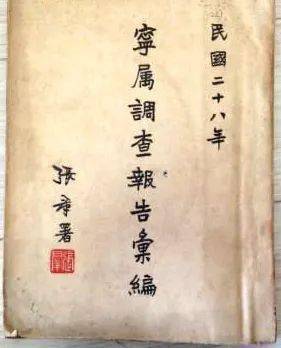 民國二十八年
寧属調查報告彙編
張羣署